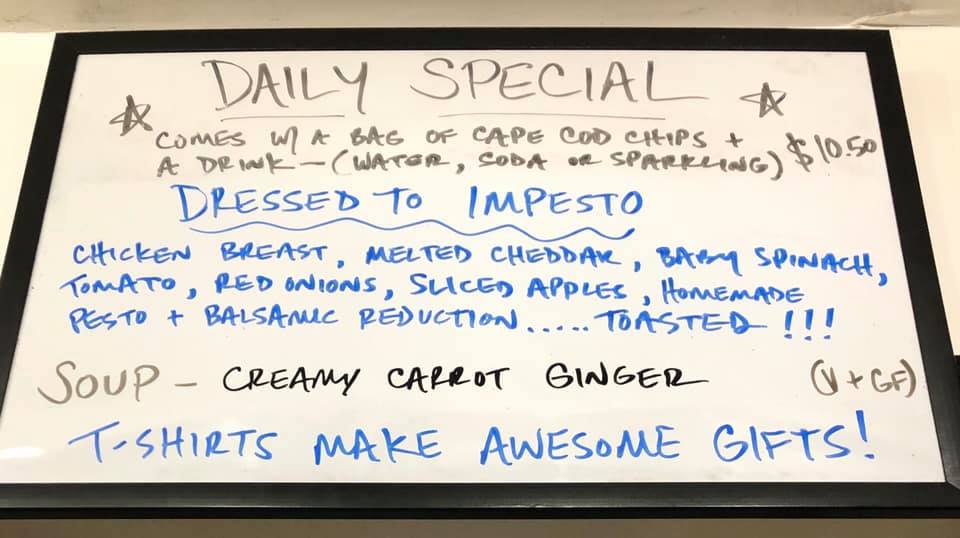 DAILY SPECIAL
COMES W/ A BAG OF CAPE COD CHIPS +
A DRINK - (WATER, SODA OR SPARKLING) $10.50
DRESSED TO IMPESTO
CHICKEN BREAST, MELTED CHEDDAR, BABY SPINACH,
TOMATO, RED ONIONS, SLICED APPLES, HOMEMADE
PESTO + BALSAMIC REDUCTION..... TOASTED!!!
SOUP - CREAMY CARROT GINGER (V + GF)
T-SHIRTS MAKE AWESOME GIFTS!